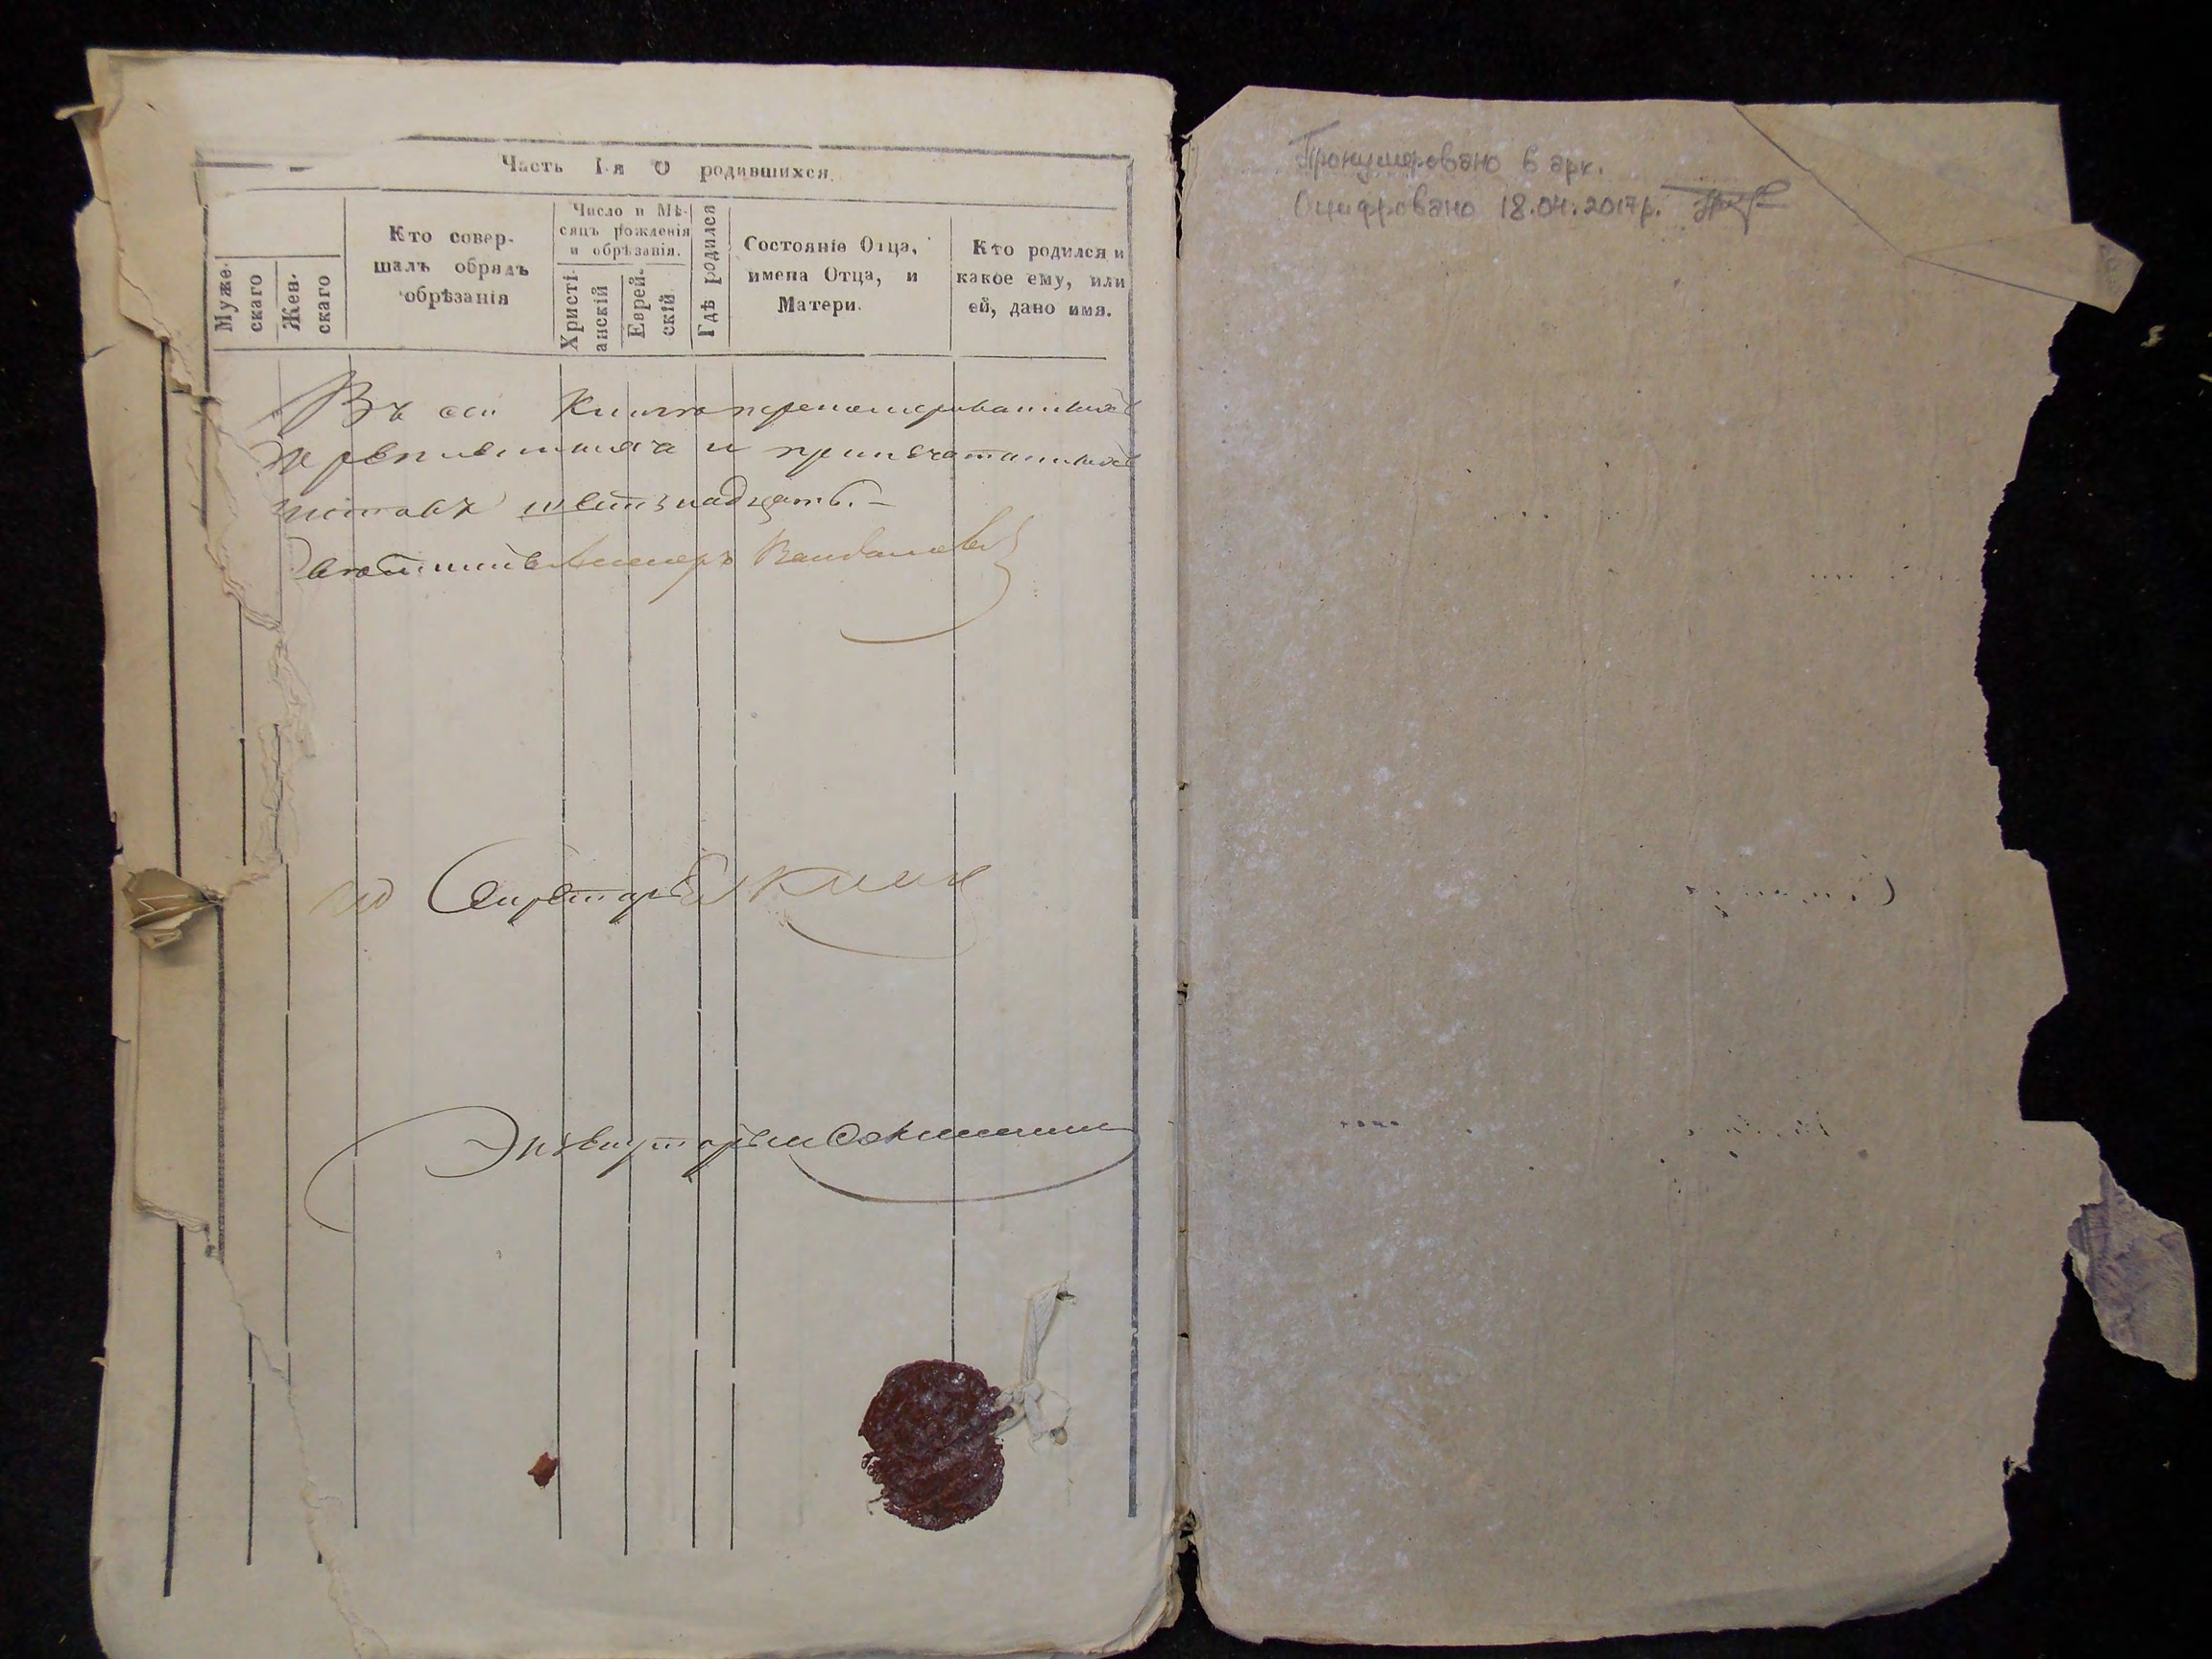 Часть I-я О родившихся.
Муже-
скаго
Жен-
скаго
Кто совер-
шалъ обрядъ
обрѣзанія
Число и Мѣ-
сяцъ рожденія
и обрѣзанія.
Христі-
анскій
Еврей-
скій
Гдѣ родился
Состояніе Отца,
имена Отца, и
Матери.
Кто родился и
какое ему, или
ей, дано имя.
Въ сей Книгѣ перенумерованныхъ
и припечатанныхъ
листовъ шестнадцать. –
Секретарь
Экзекуторъ
Пронумеровано 6 арк.
Оцифровано 18.04.2017р.